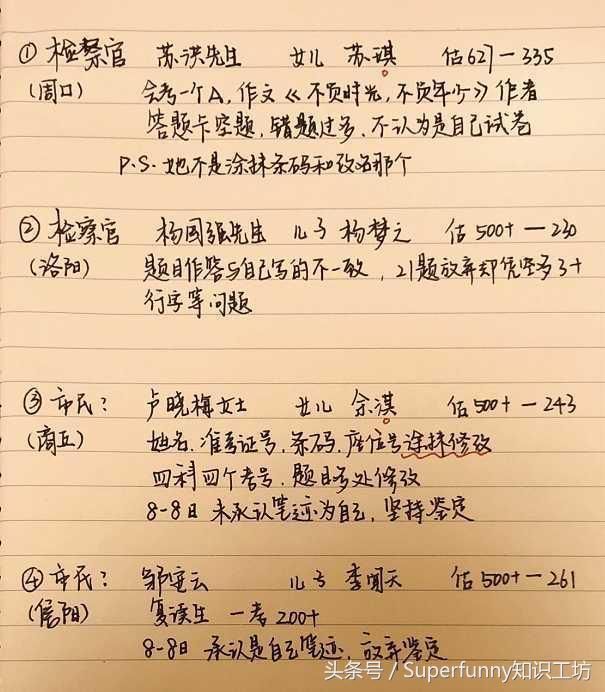 ① 检察官 苏洪先生 女儿 苏琪 估627—335
(周口) 会考一个A,作文《不负时光,不负年少》作者
答题卡空题,错题过多,不认为是自己试卷
P.S. 她不是涂抹条码和改名那个
② 检察官 杨国强先生 儿子 杨梦之 估500+—230
(洛阳) 题目作答与自己写的不一致,21题放弃却凭空多3+
行字等问题
③ 市民? 卢晓梅女士 女儿 余淇 估500+—243
(商丘) 姓名.准考证号.条码.座位号涂抹修改
四科四个考号,题目多处修改
8-8日 未承认笔迹为自己,坚持鉴定
④ 市民? 邹 云 儿子 李闻天 估500+—261
(信阳) 复读生 一考200+
8-8日 承认是自己笔迹,放弃鉴定
头条号 / Superfunny知识工坊